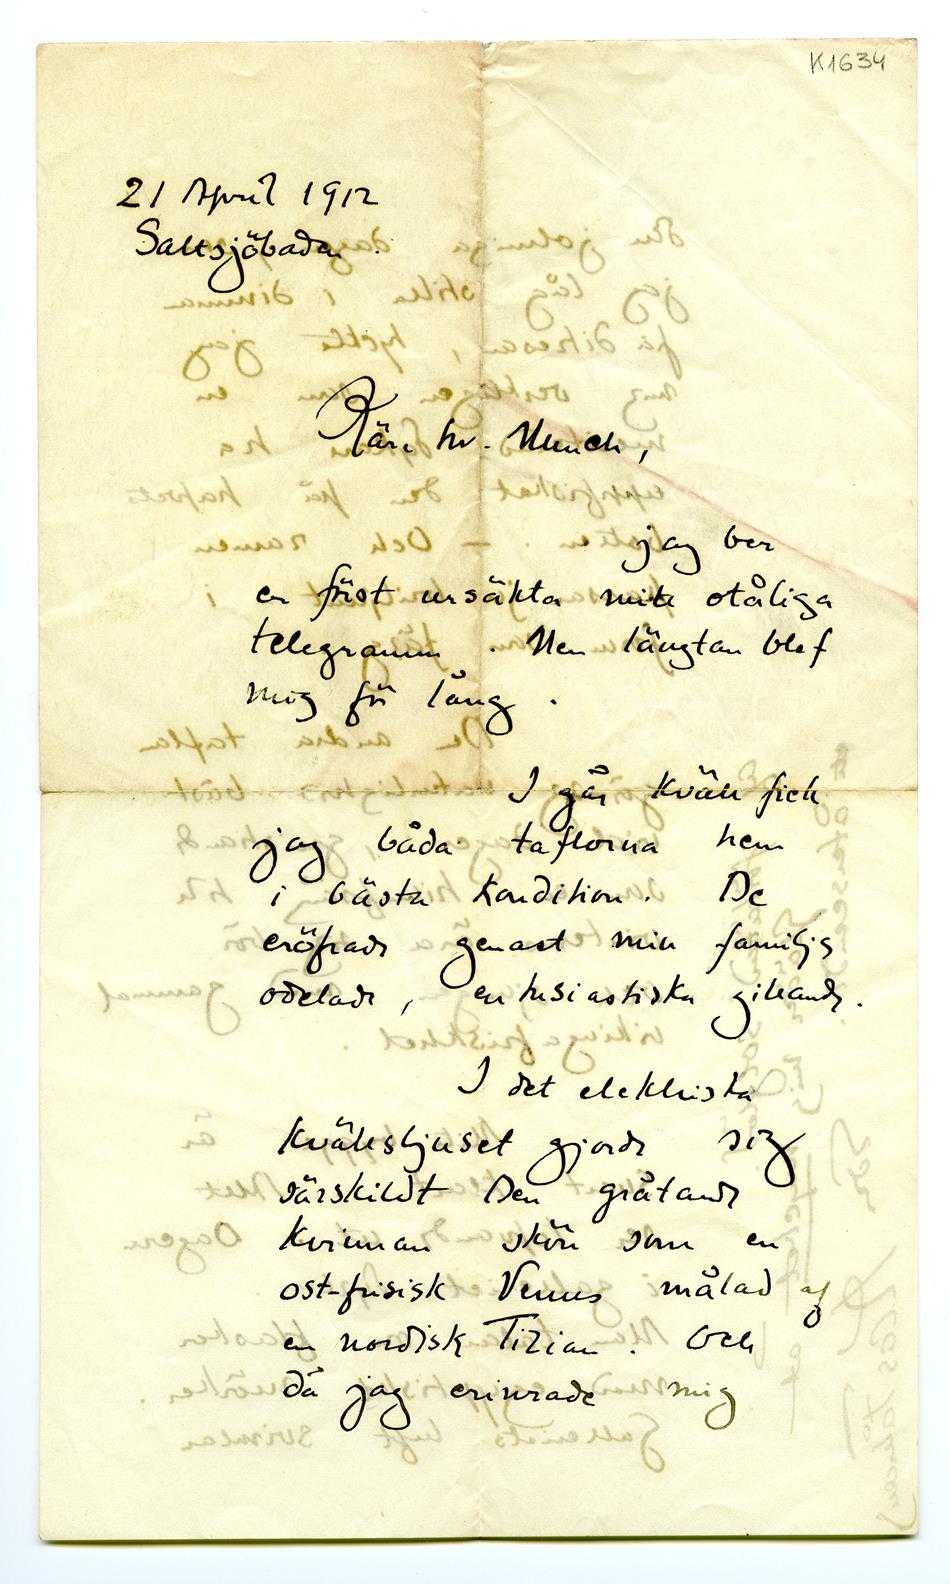 K1634
21 April 1912
Saltsjöbaden.
Käre hr. Munch,
jag ber
er först ursäkta mitt otåliga
telegramm. Men längtan blef
mig för lång.
I går kväll fick
jag båda taflorna hem
i bästa kondition. De
eröfrade genast min familjs
odelade, entusiastiska gillande.
I det elektriska
kvällsljuset gjorde sig
särskildt den gråtande
kvinnan skön som en
ost-frisisk Venus målad af
en nordisk Tizian. Och
då jag erinrade mig